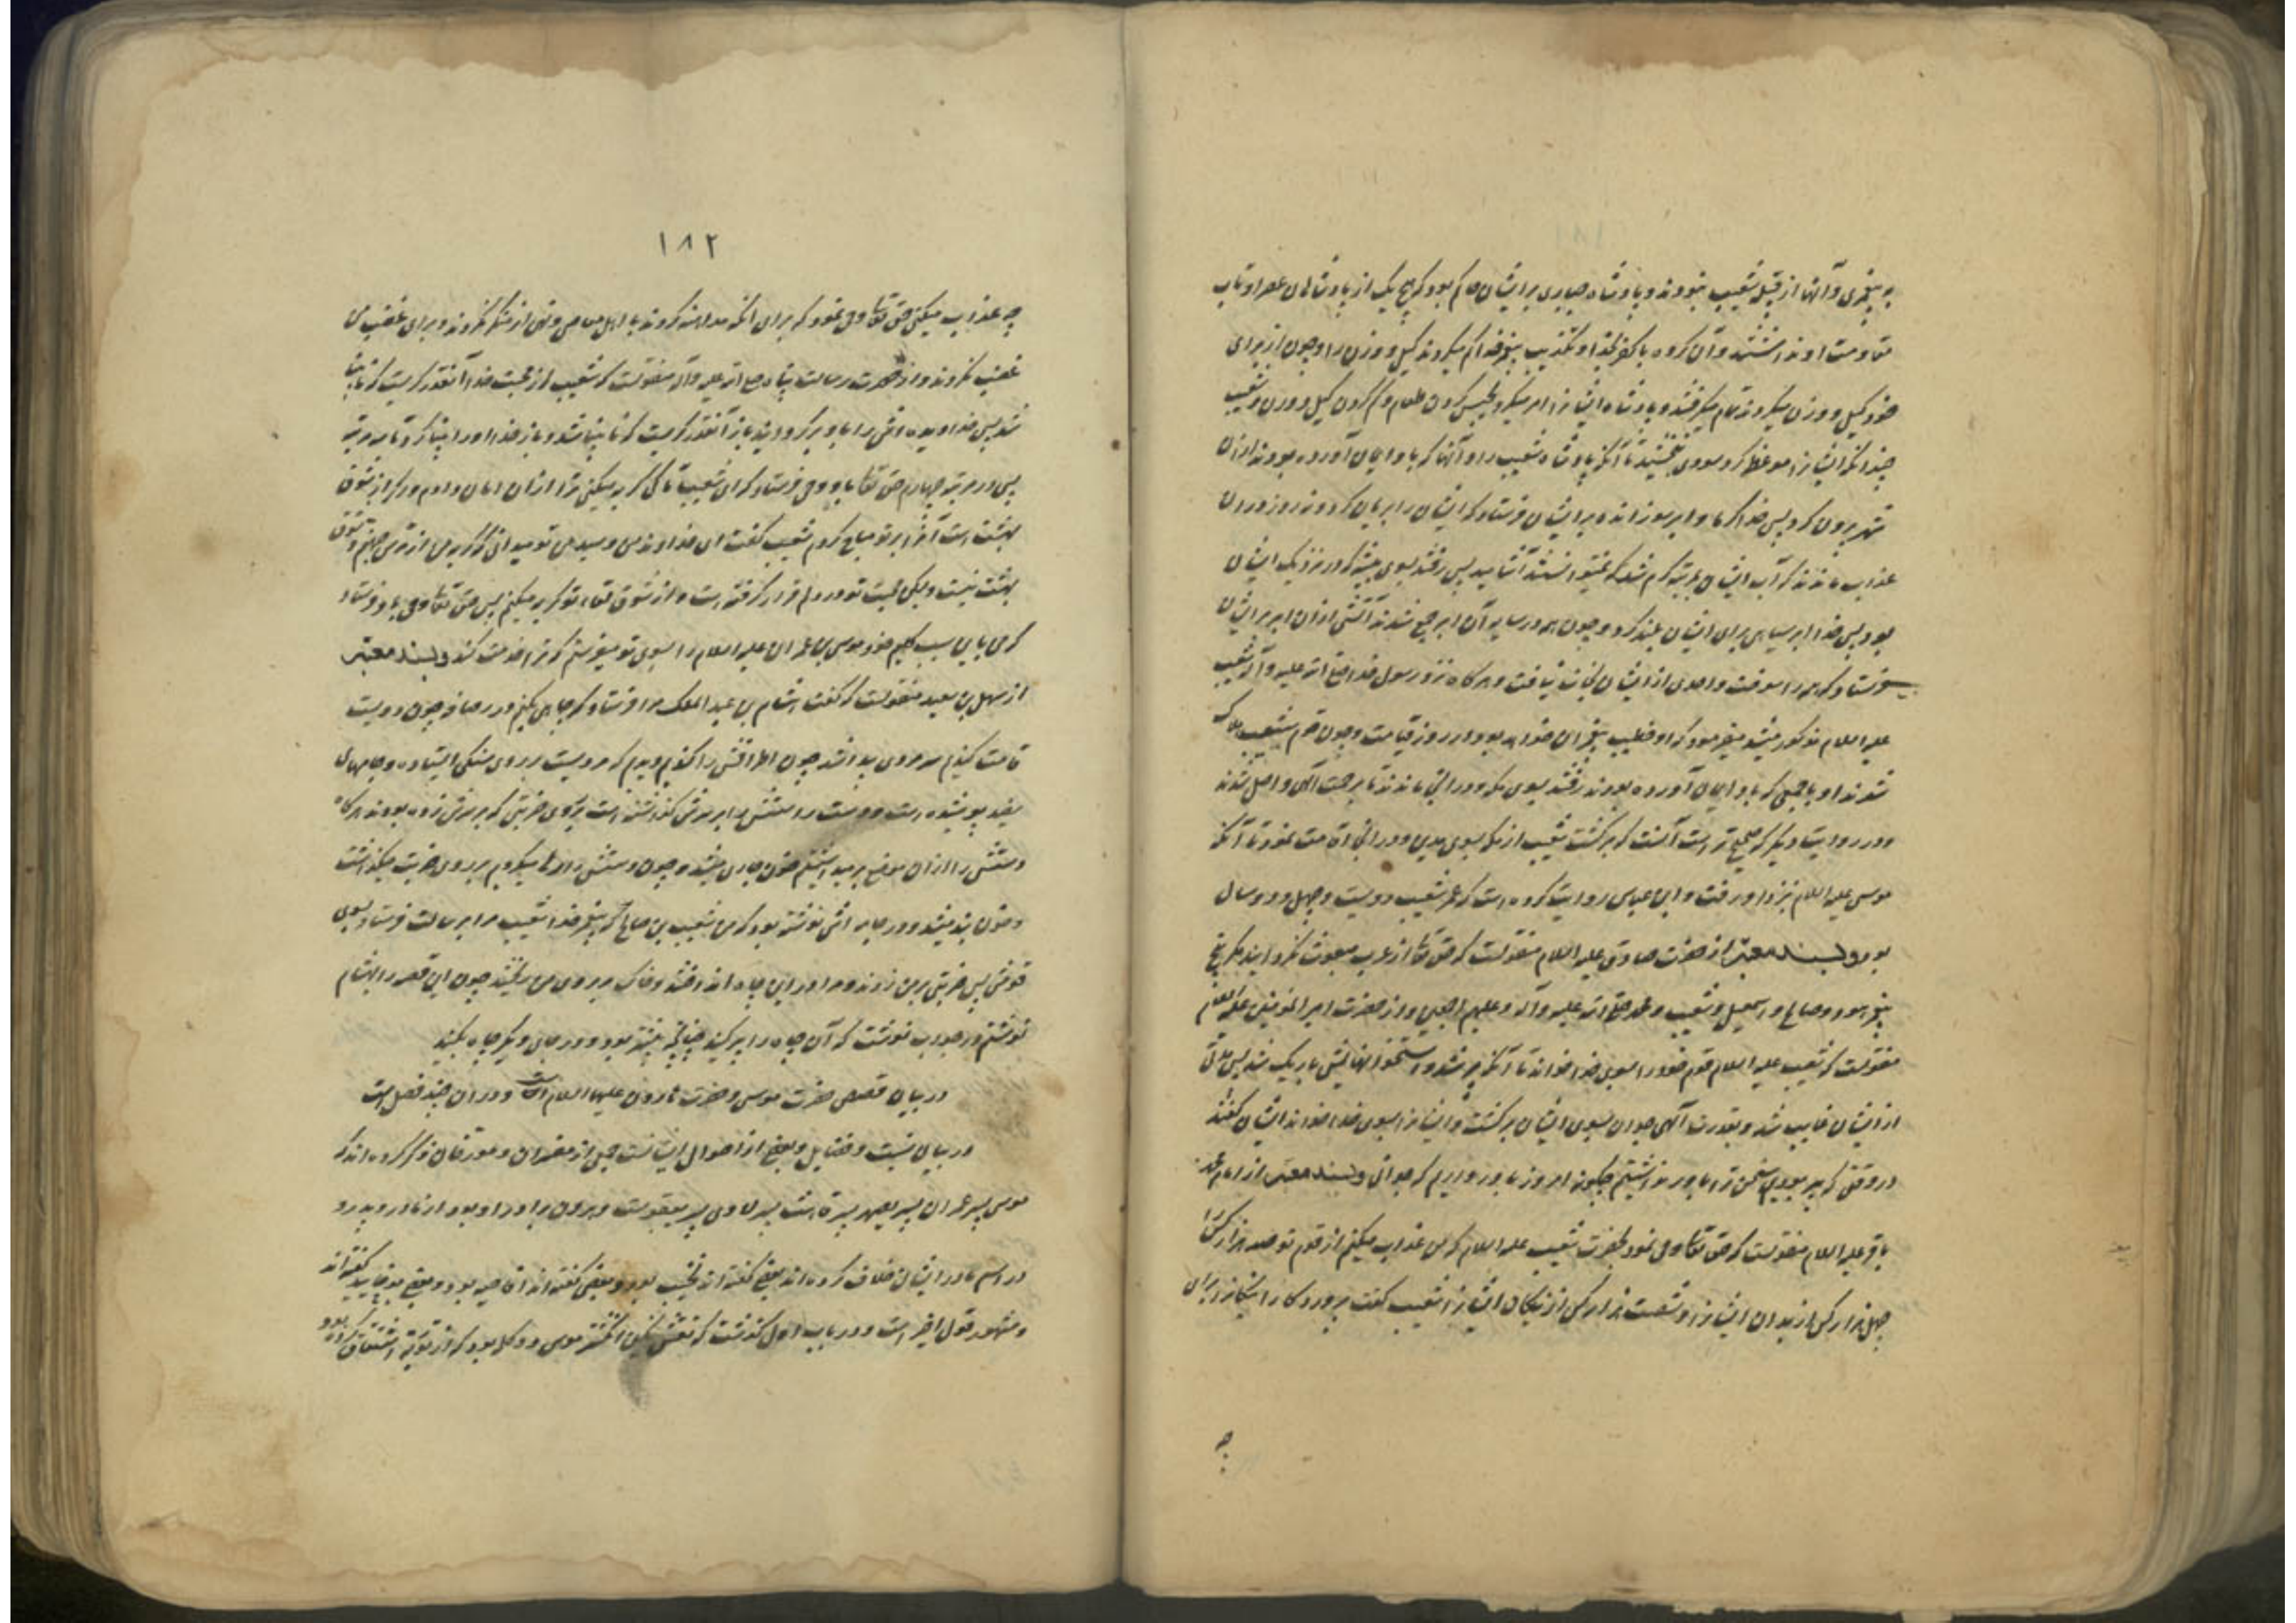 به پیغمبری و آنها از قبیله شعیب نبودند و پادشاه جباری بر ایشان حاکم بود که هیچ یک از پادشاهان عصر او تاب
مقاومت او نداشتند و آن گروه با کفر بخدا و تکذیب پیغمبر خدا کم میکردند کیل و وزن را و چون از برای
خود کیل و وزن میکردند تمام میگرفتند و پادشاه ایشانرا امر میکرد بحبس کردن طعام و کم کردن کیل و وزن و شعیب
چندانکه ایشانرا موعظه کرد سودی نبخشید تا آنکه پادشاه شعیب را و آنها که باو ایمان آورده بودند از ان
شهر بیرون کرد پس خدا گرما و ابر سوزانده بر ایشان فرستاد که ایشان را بریان کرد و نه روز در ان
عذاب ماندند که آب ایشان بمرتبه گرم شد که نمیتوانستند آشامید پس رفتند بسوی بیشه که در نزدیک ایشان
بود پس خدا ابر سیاهی برای ایشان بلند کرد و چون همه در سایه آن ابر جمع شدند آتشی از ان ابر بر ایشان
فرستاد که همه را سوخت و احدی از ایشان نجات نیافت و هرگاه نزد رسول خدا صلی الله علیه و آله شعیب
علیه السلام مذکور میشد میفرمود که او خطیب پیغمبران خواهد بود در روز قیامت و چون قوم شعیب هلاک
شدند او با جمعی که باو ایمان آورده بودند رفتند بسوی مکه و در انجا ماندند تا برحمت الهی واصل شدند
و در روایت دیگر که صحیح تر است آنست که برگشت شعیب از مکه بسوی مدین و در انجا اقامت نمود تا آنکه
موسی علیه السلام بنزد او رفت و ابن عباس روایت کرده است که عمر شعیب دویست و چهل و دو سال
بود و بسند معتبر از حضرت صادق علیه السلام منقولست که حق تعا از عرب مبعوث نگردانید مگر پنج
پیغمبر هود و صالح و اسمعیل و شعیب و محمد صلی الله علیه و آله و علیهم اجمعین و از حضرت امیر المؤمنین علیه السلام
منقولست که شعیب علیه السلام قوم خود را بسوی خدا خواند تا آنکه پیر شد و استخوانهایش باریک شد پس مدتی
از ایشان غایب شد و بقدرت الهی جوان بسوی ایشان برگشت و ایشانرا بسوی خدا خواند ایشان گفتند
در وقتی که پیر بودی سخن ترا باور نداشتیم چگونه امروز باور داریم که جوانی و بسند معتبر از امام محمد
باقر علیه السلام منقولست که حق تعا وحی نمود بحضرت شعیب علیه السلام که من عذاب میکنم از قوم تو صد هزار کس را
چهل هزار کس از بدان ایشانرا و شصت هزار کس از نیکان ایشانرا شعیب گفت پروردگارا نیکانرا برای
چه
۱۸۲
چه عذاب میکنی حق تعا وحی نمود که برای آنکه مداهنه کردند با اهل معاصی و نهی از منکر نکردند و برای غضب من
غضب نکردند و از حضرت رسالت پناه صلی الله علیه و آله منقولست که شعیب از محبت خدا آنقدر گریست که نابینا
شد پس خدا دیده اش را باو برگردانید باز آنقدر گریست که نابینا شد و باز خدا او را بینا کرد تا سه مرتبه
پس در مرتبه چهارم حق تعا باو وحی فرستاد که ای شعیب تا کی گریه میکنی ترا از ان امان دادم و اگر از شوق
بهشت است آنرا بر تو مباح کردم شعیب گفت ای خداوند من و سید من تو میدانی که گریه من از ترس جهنم و شوق
بهشت نیست و لیکن محبت تو در دلم قرار گرفته است و از شوق لقاء تو گریه میکنم پس حق تعا وحی باو فرستاد
که من باین سبب کلیم خود موسی بن عمران علیه السلام را بسوی تو میفرستم که ترا خدمت کند و بسند معتبر
از سهل بن سعید منقولست که گفت هشام بن عبد الملک مرا فرستاد که چاهی بکنم در رصافه چون دویست
قامت کندیم سر مردی پیدا شد چون اطرافش را کندیم دیدم که مردیست بر روی سنگی ایستاده و جامهای
سفید پوشیده است و دست راستش را بر سرش گذاشته است بر روی ضربتی که بر سرش زده بودند هرگاه
دستش را از ان موضع بر میداشتیم خون جاری میشد و چون دستش را رها میکردیم بر روی ضربت میگذاشت
و خون بند میشد و در جامه اش نوشته بود که من شعیب بن صالح که پیغمبر خدا شعیب مرا برسالت فرستاد بسوی
قومش پس ضربتی بر من زدند و مرا در این چاه انداختند و خاک بر روی من ریختند چون این قصه را بهشام
نوشتم در جواب نوشت که آن چاه را پر کنید چنانچه پیشتر بود و در جای دیگر چاه بکنید
در بیان قصص حضرت موسی و حضرت هارون علیهما السلام است و در ان چند فصل است
در بیان نسبت و فضایل و بعضی از احوال ایشانست جمعی از مفسران و مورخان ذکر کرده اند که
موسی پسر عمران پسر یصهر پسر قاهث پسر لاوی پسر یعقوبست و هرون برادر او بود از مادر و پدر و
در اسم مادر ایشان خلاف کرده اند بعضی گفته اند نجیب بود و بعضی گفته اند افاحیه بود و بعضی یوخابید گفته اند
و مشهور قول اخیر است و در باب اول گذشت که نقش نگین انگشتر موسی دو کلمه بود که از توریة اشتقاق کرده بود